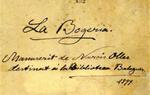 La Bogeria.
Manuscrit de Narcís Oller
destinat á la Biblioteca Balaguer
1899